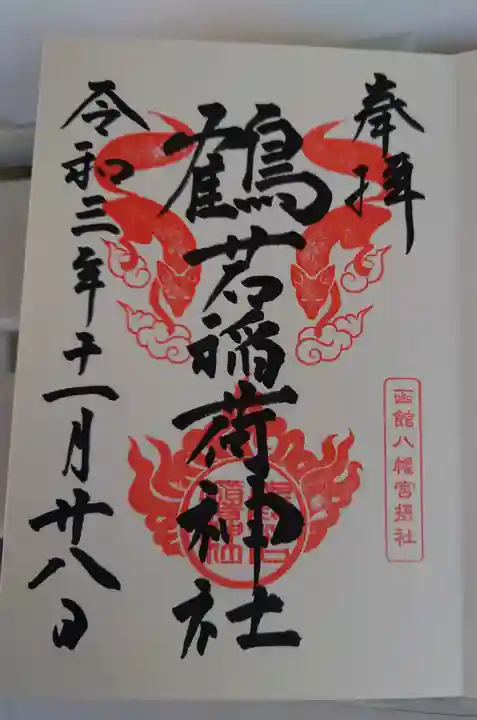 奉拝
函館八幡宮摂社
鶴若稲荷神社
令和三年十一月廿八日